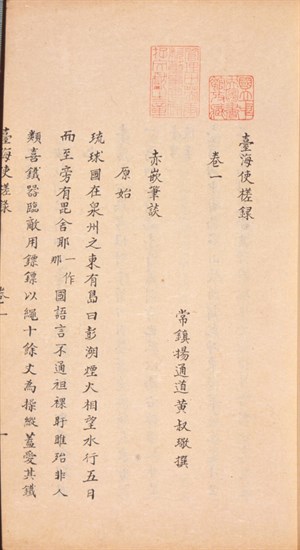 臺海使槎録
卷一
常鎮揚通道黄叔璥撰
赤嵌筆談
原始
琉球國在泉州之東有島曰彭湖煙火相望水行五日
而至旁有毘舍耶一作那國語言不通袒裸盱睢殆非人
類喜鐵器臨敵用鏢鏢以繩十餘丈為操縱蓋愛其鐵
臺海使槎録 卷一 一